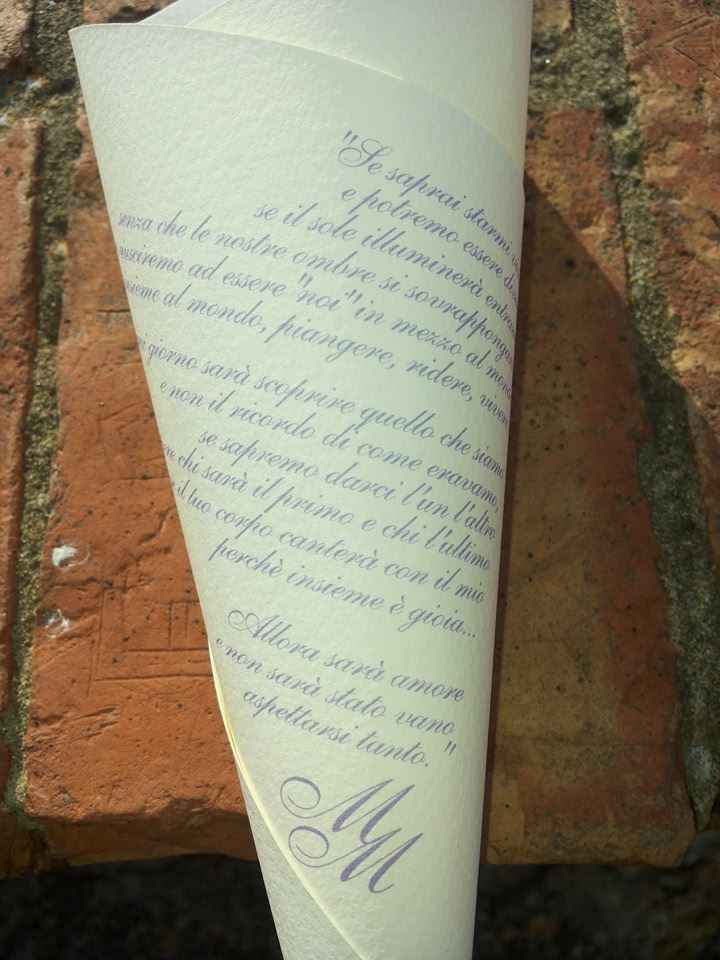 "Se saprai starmi
e potremo essere
se il sole illuminerà
senza che le nostre ombre si
ad essere "noi" in mezzo al
al mondo, piangere, ridere,
giorno sarà scoprire quello che siamo
e non il ricordo di come eravamo,
se sapremo darci l'un l'altro
chi sarà il primo e chi l'ultimo
il tuo corpo canterà con il mio
perchè insieme è gioia...
Allora sarà amore
e non sarà stato vano
aspettarsi tanto."
MM